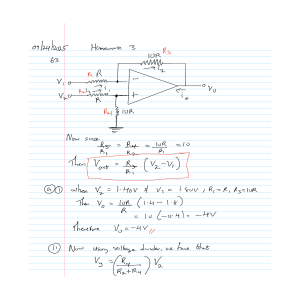 09/24/2025 Homework 3
10R R3
R1 R
I2
V1
R2 I1
V2 R
io
V0
R4 10R
Now since
R3/R1 = R4/R2 = 10R/R = 10
Then Vout = R3/R1 (V2 - V1)
a i when V2 = 1.40V & V1 = 1.80V, R1 = R, R3 = 10R
The V0 = 10R/R (1.4 - 1.8)
= 10 (-0.4) = -4V
Therefore V0 = -4V //
ii Now using voltage divider, we have that
Vy = (R4/(R2+R4)) V2